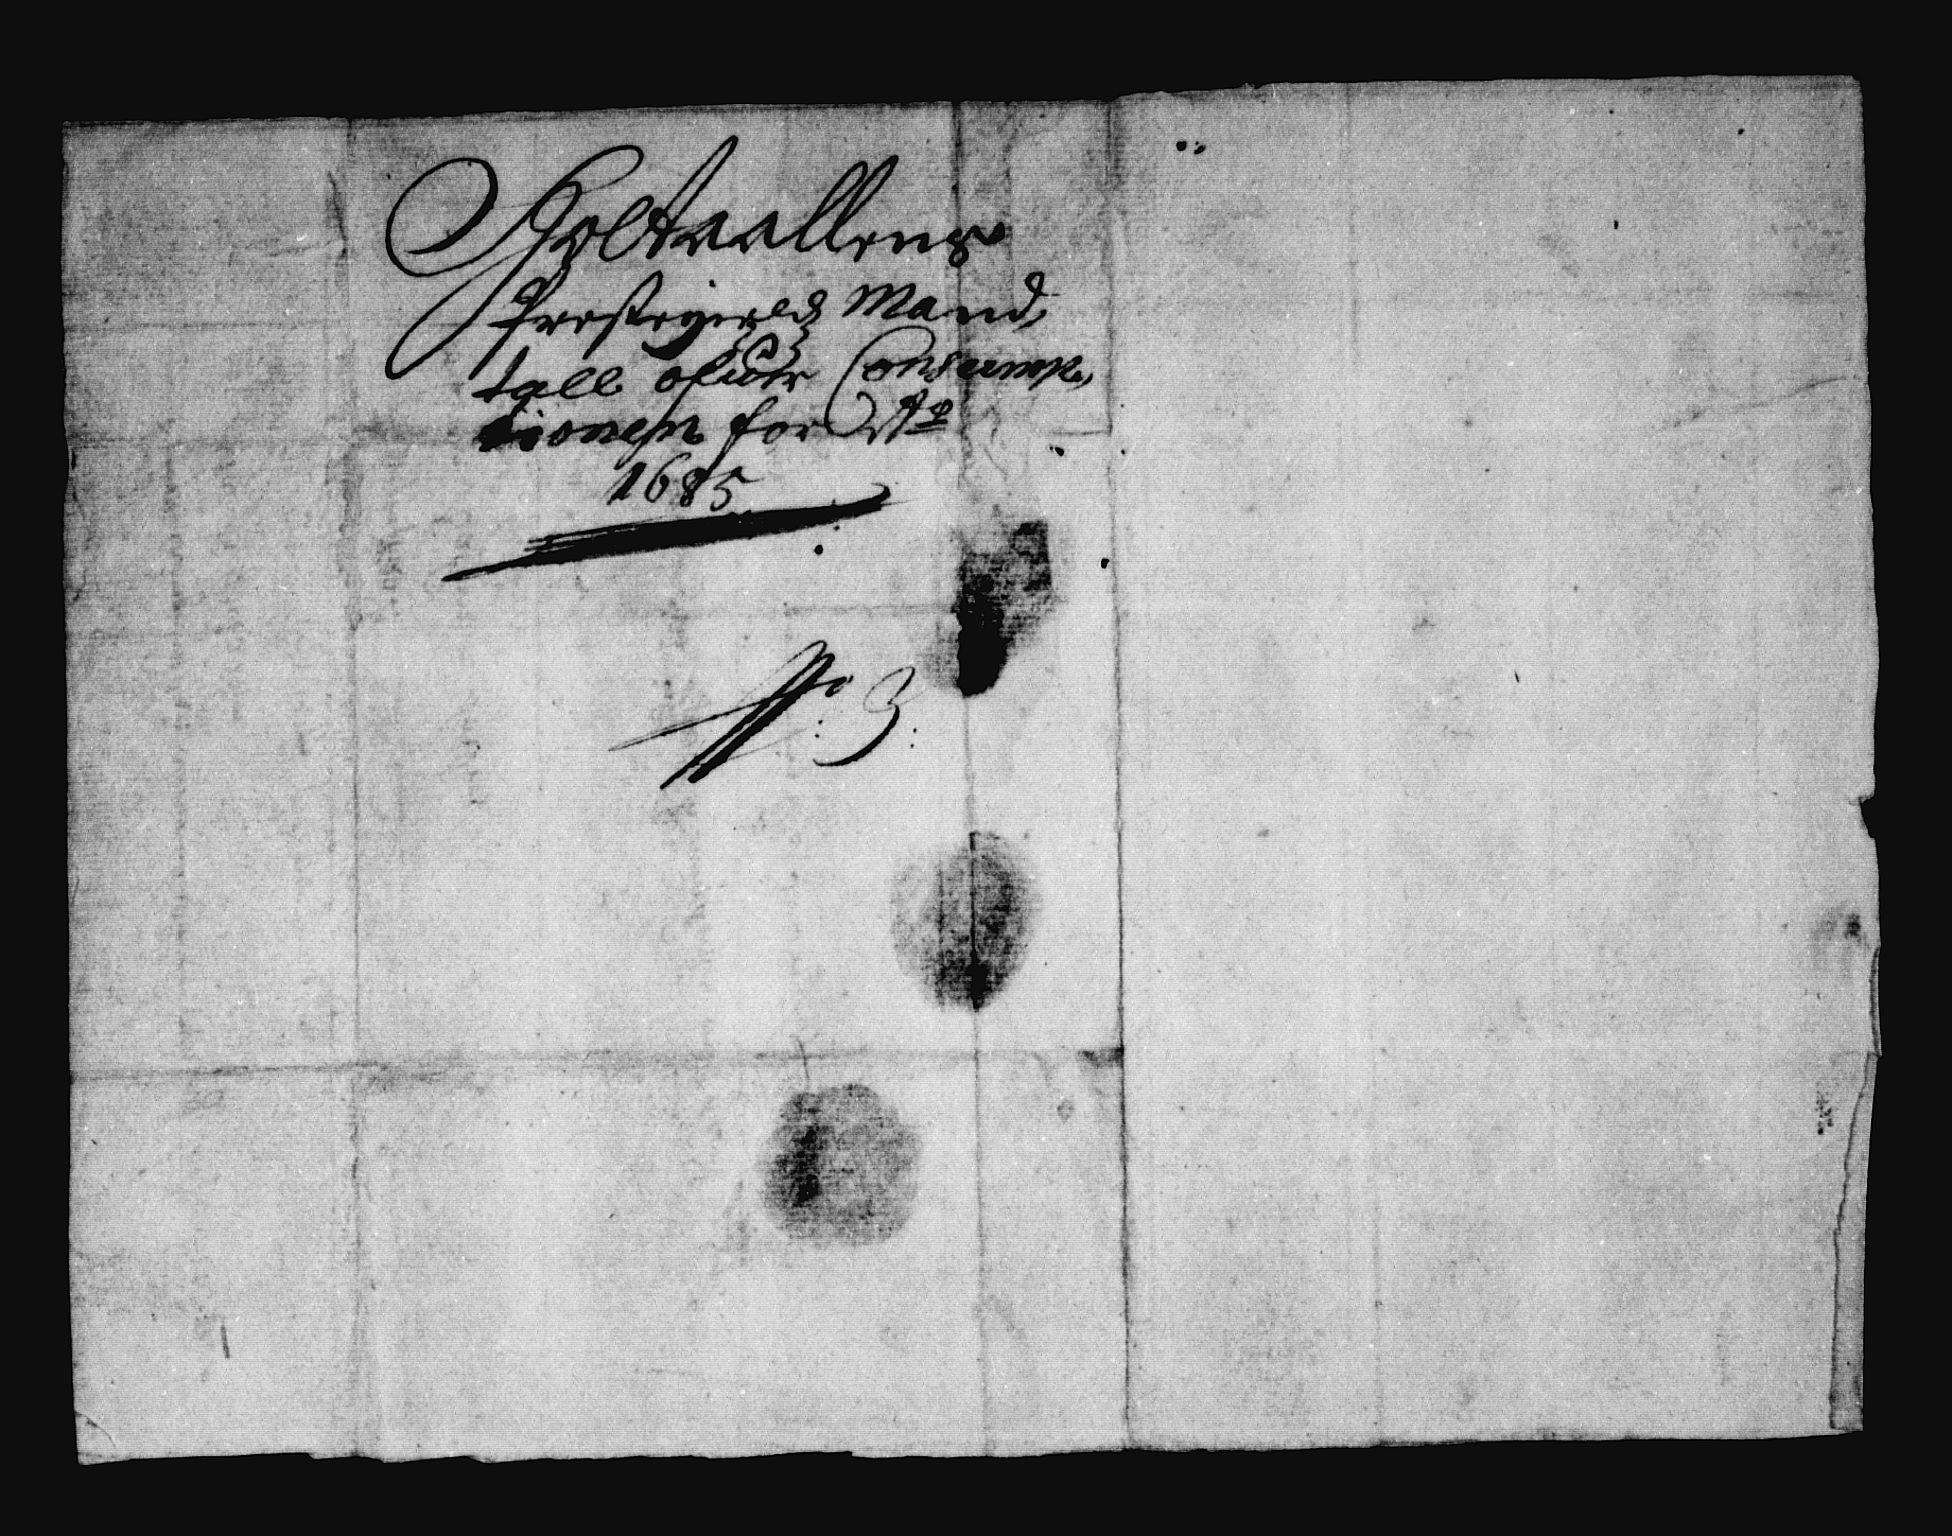 Holtaallens
Prestegields Mand,
tall ofuer Consump,
tionen for Aº
1685
Nº: 3.